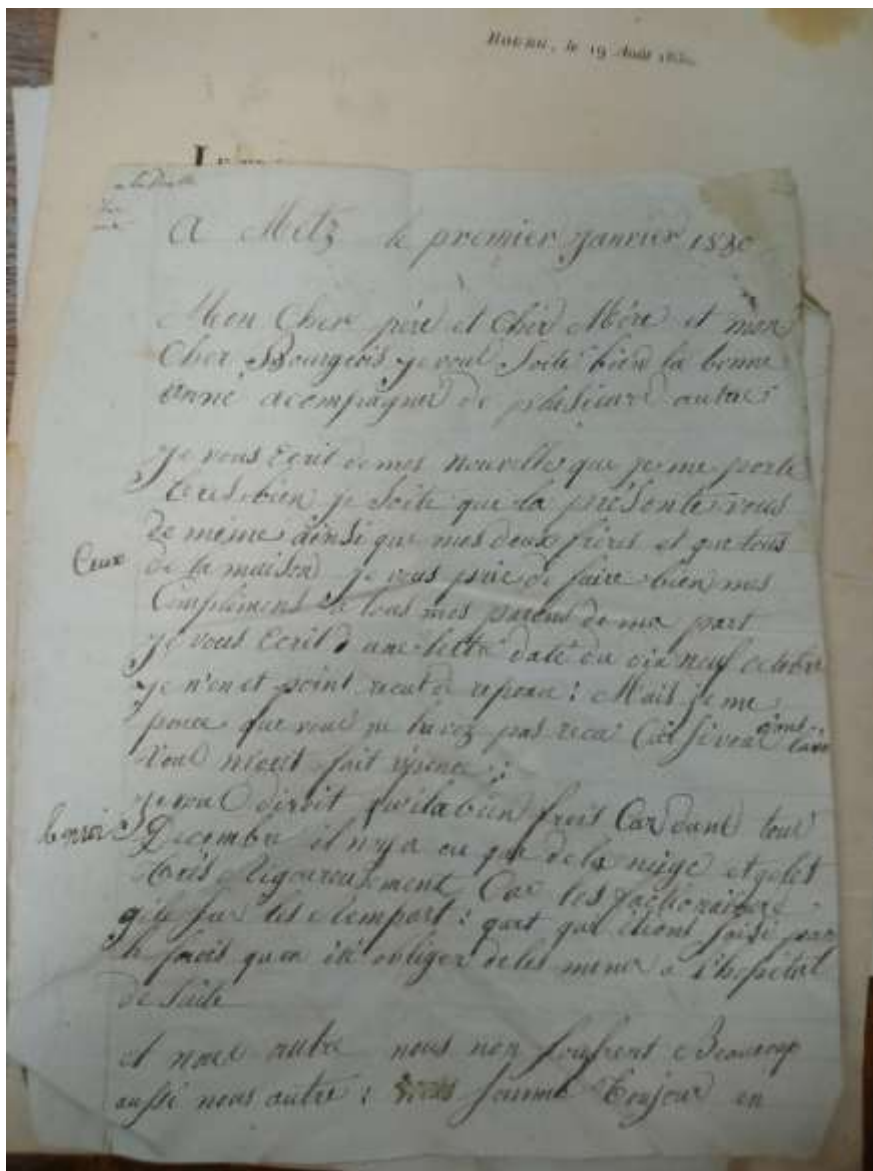 le 19 Août
A Metz le premier janvier 1830
Mon Cher père et Chèr Mère et mon
Cher Bourgeois je vous Soite bien la bonne
anné acompagner de plusieurs autre
Je vous Ecrit de mes nouvelle que je me porte
bien je soite que la présente vous
de même ainsi que mes deux frères et que tous
Ceux de la maison je vous prie de faire bien mes
Complémens a tous mes parens de ma part
Je vous Ecrit une lettre daté du dix neuf octobre
je n'en et point recut de reponce : Mais je me
pence que vous ne lavez pas recu Car si vous
vous fait réponce
je vous diroit quila bien frois Car dant tout
Decembre il nya eu que de la nège et gelet
Rigoureusement Car les factionaire
sur les Rempart : quat que étiont saisi par
le frois quon été obliger de les mener a l'hopital
de suite
et nous autre nous non soufrent Beaucoup
aussi nous autre : somme Toujour en